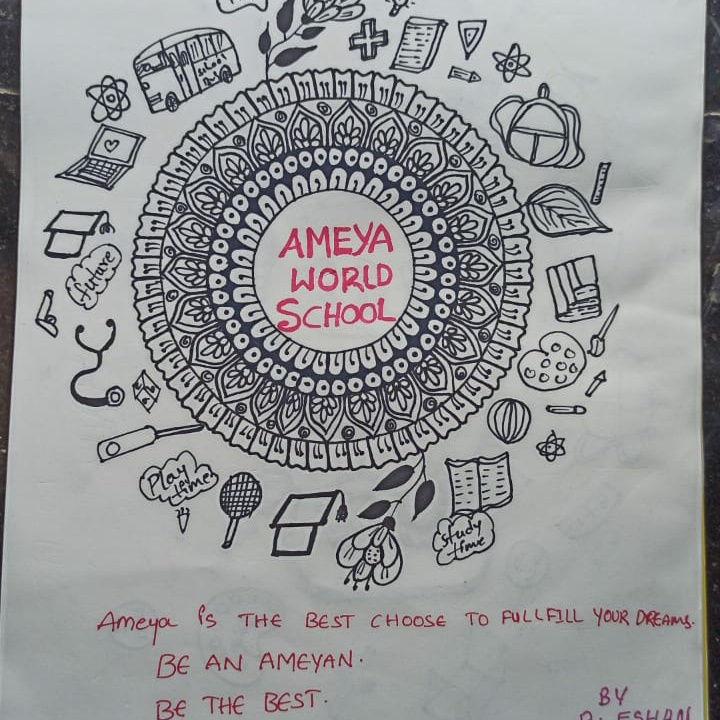 School
Bus
AMEYA
WORLD
SCHOOL
future
Play
time
study
time
Ameya is THE BEST CHOOSE TO FULLFILL YOUR DREAMS.
BE AN AMEYAN.
BE THE BEST.
BY
ESHAN